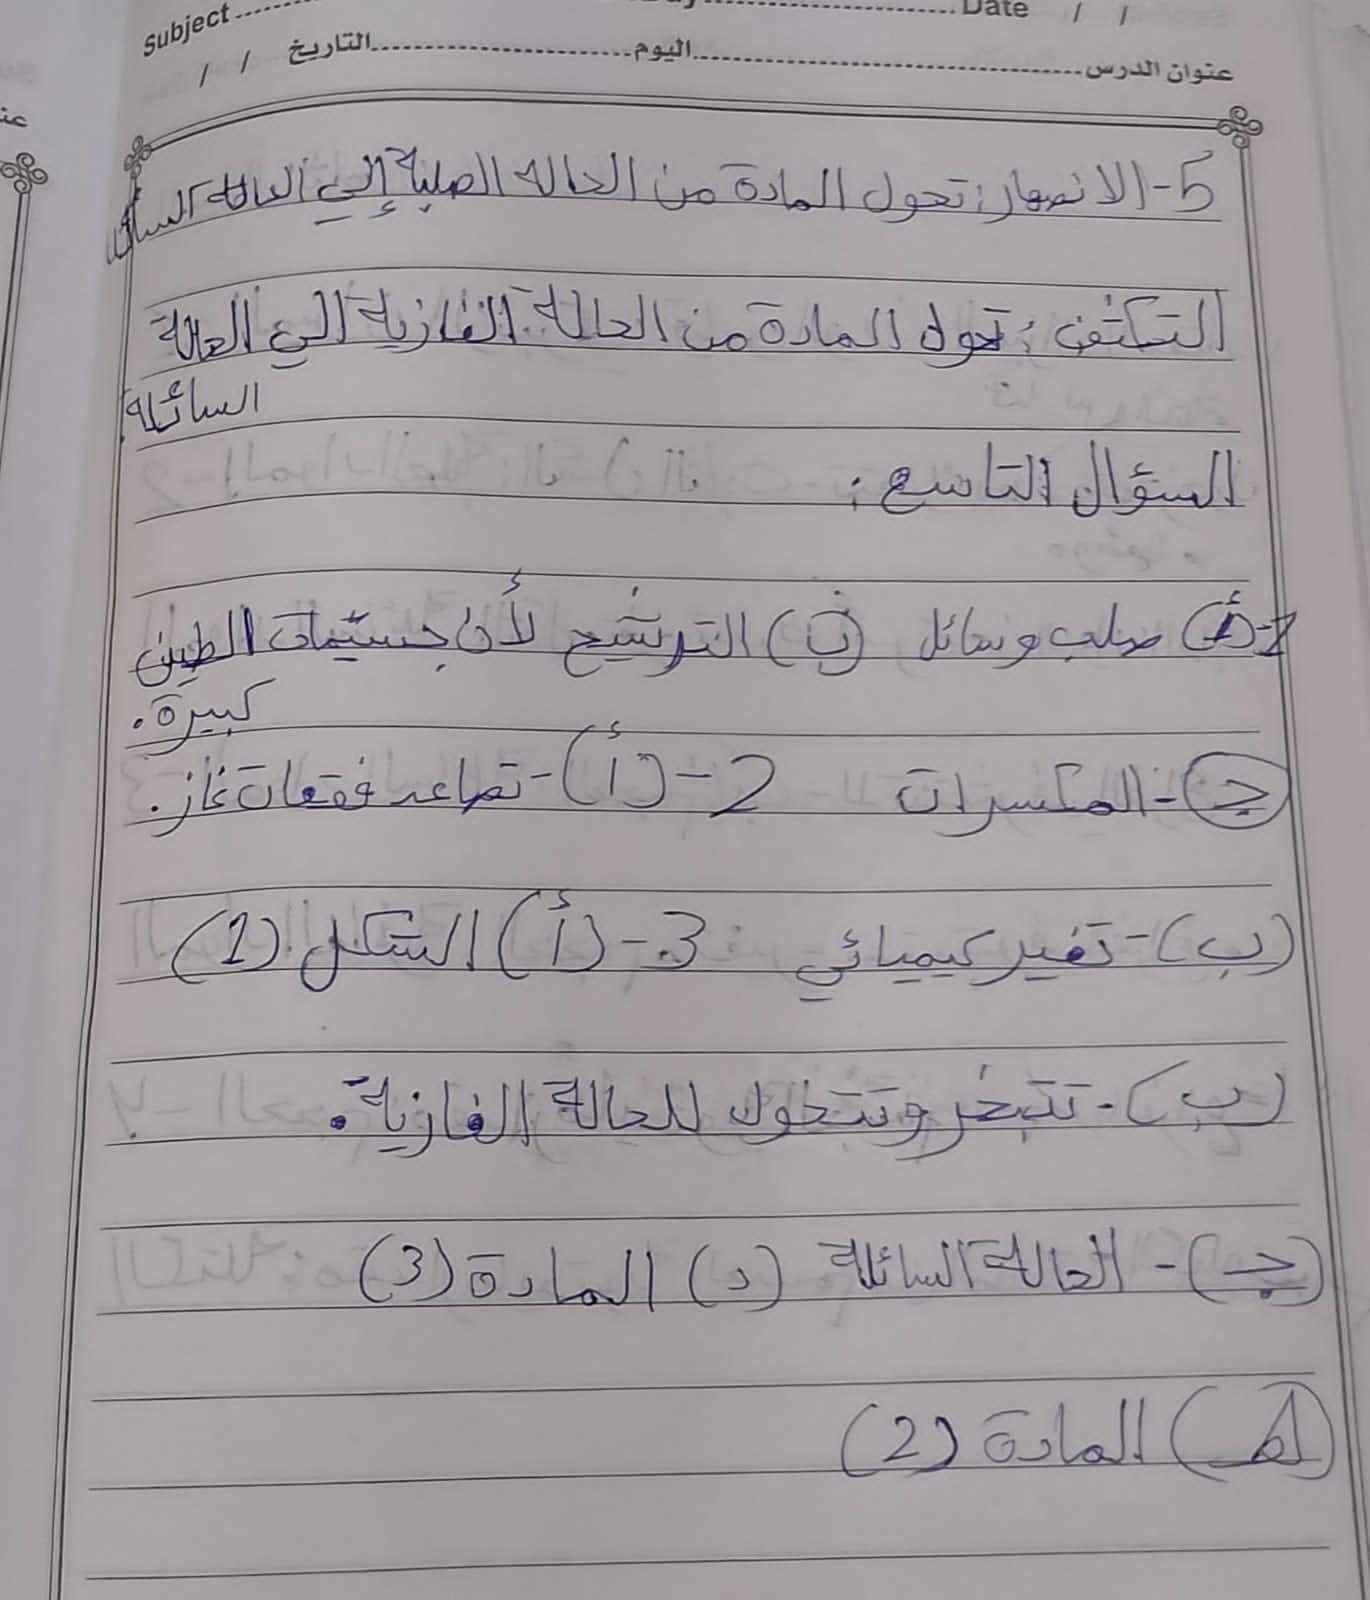 Subject Date / /
عنوان الدرس اليوم التاريخ / /
5- الانصهار: تحول المادة من الحالة الصلبة إلى الحالة السائلة
التكثف: تحول المادة من الحالة الغازية الى الحالة
السائلة.
السؤال التاسع:
1- (أ) صلب وسائل (ب) الترشيح لأن جسيمات الطين
كبيرة.
(ج)- المكسرات 2- (أ)- تصاعد فقعات غاز.
(ب)- تغير كيميائي 3- (أ) الشكل (1)
(ب)- تتبخر وتتحول للحالة الغازية.
(ج)- الحالة السائلة (د) المادة (3)
المادة (2)